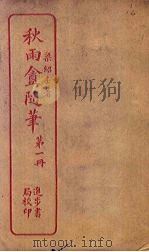 梁紹
秋雨盦隨筆
第一冊
進步書
局校印